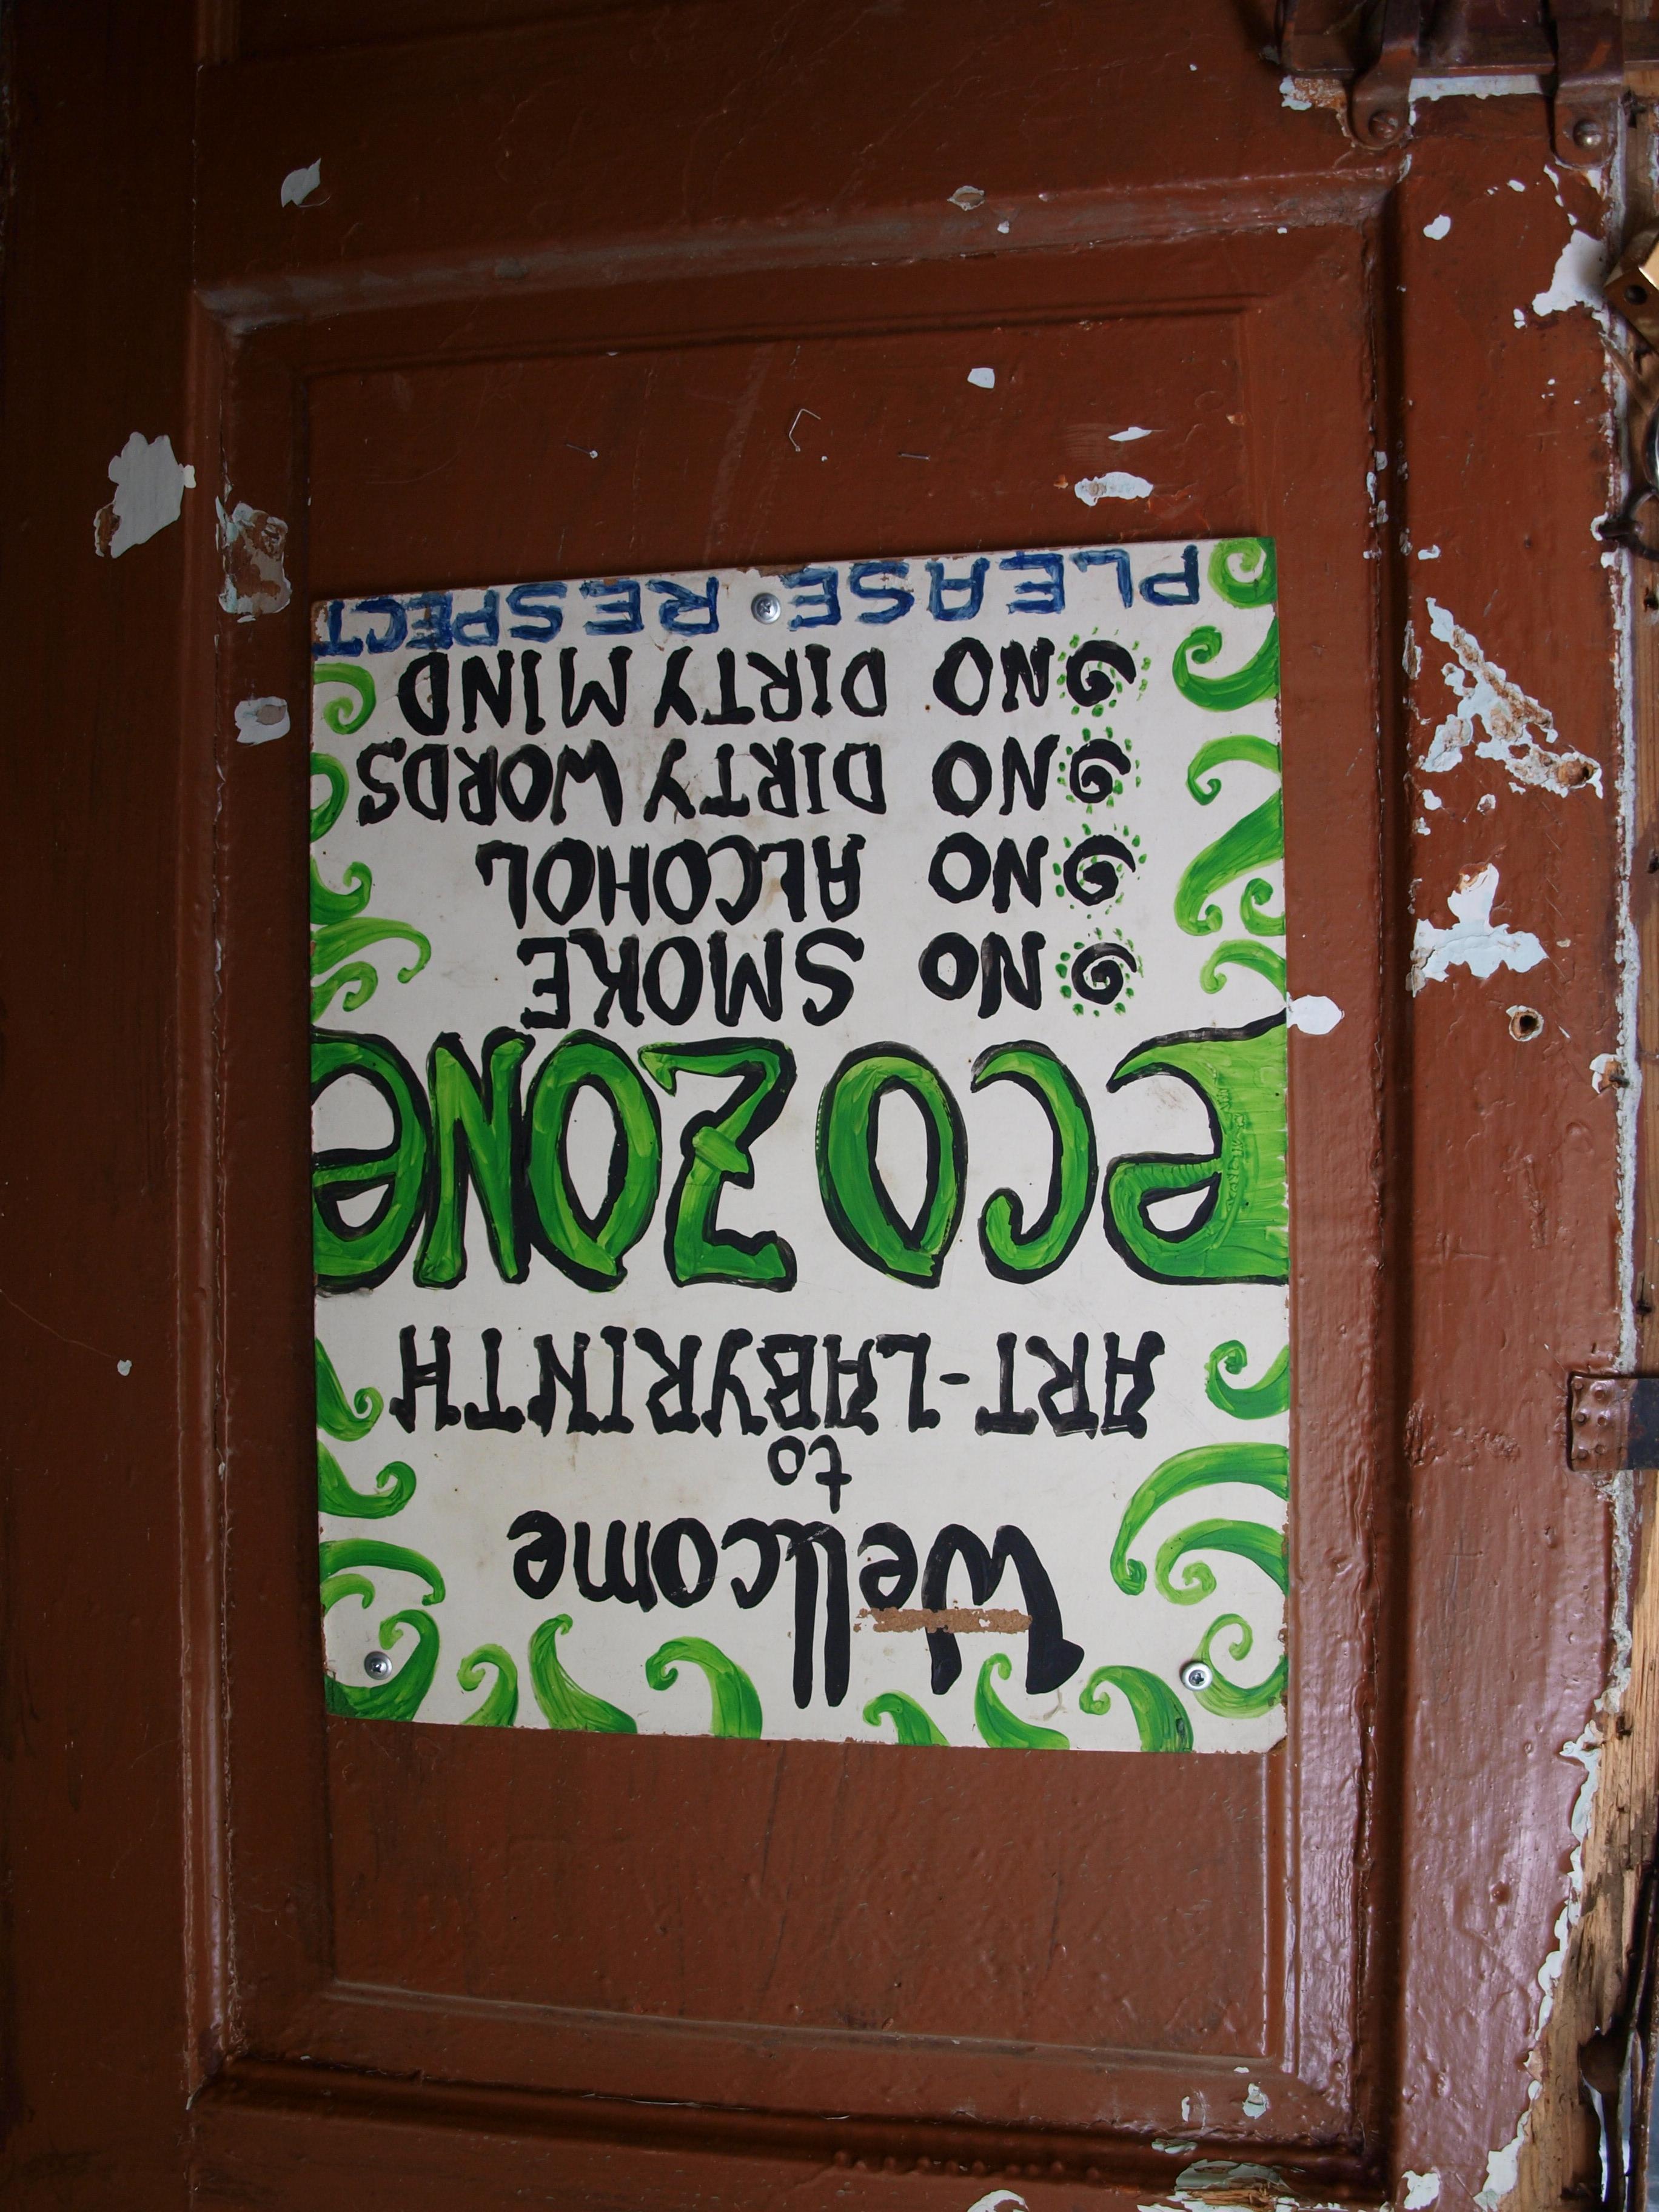 Wellcome
to
ART-LABYRINTH
eco ZONe
NO SMOKE
NO ALCOHOL
NO DIRTY WORDS
NO DIRTY MIND
PLEASE RESPECT